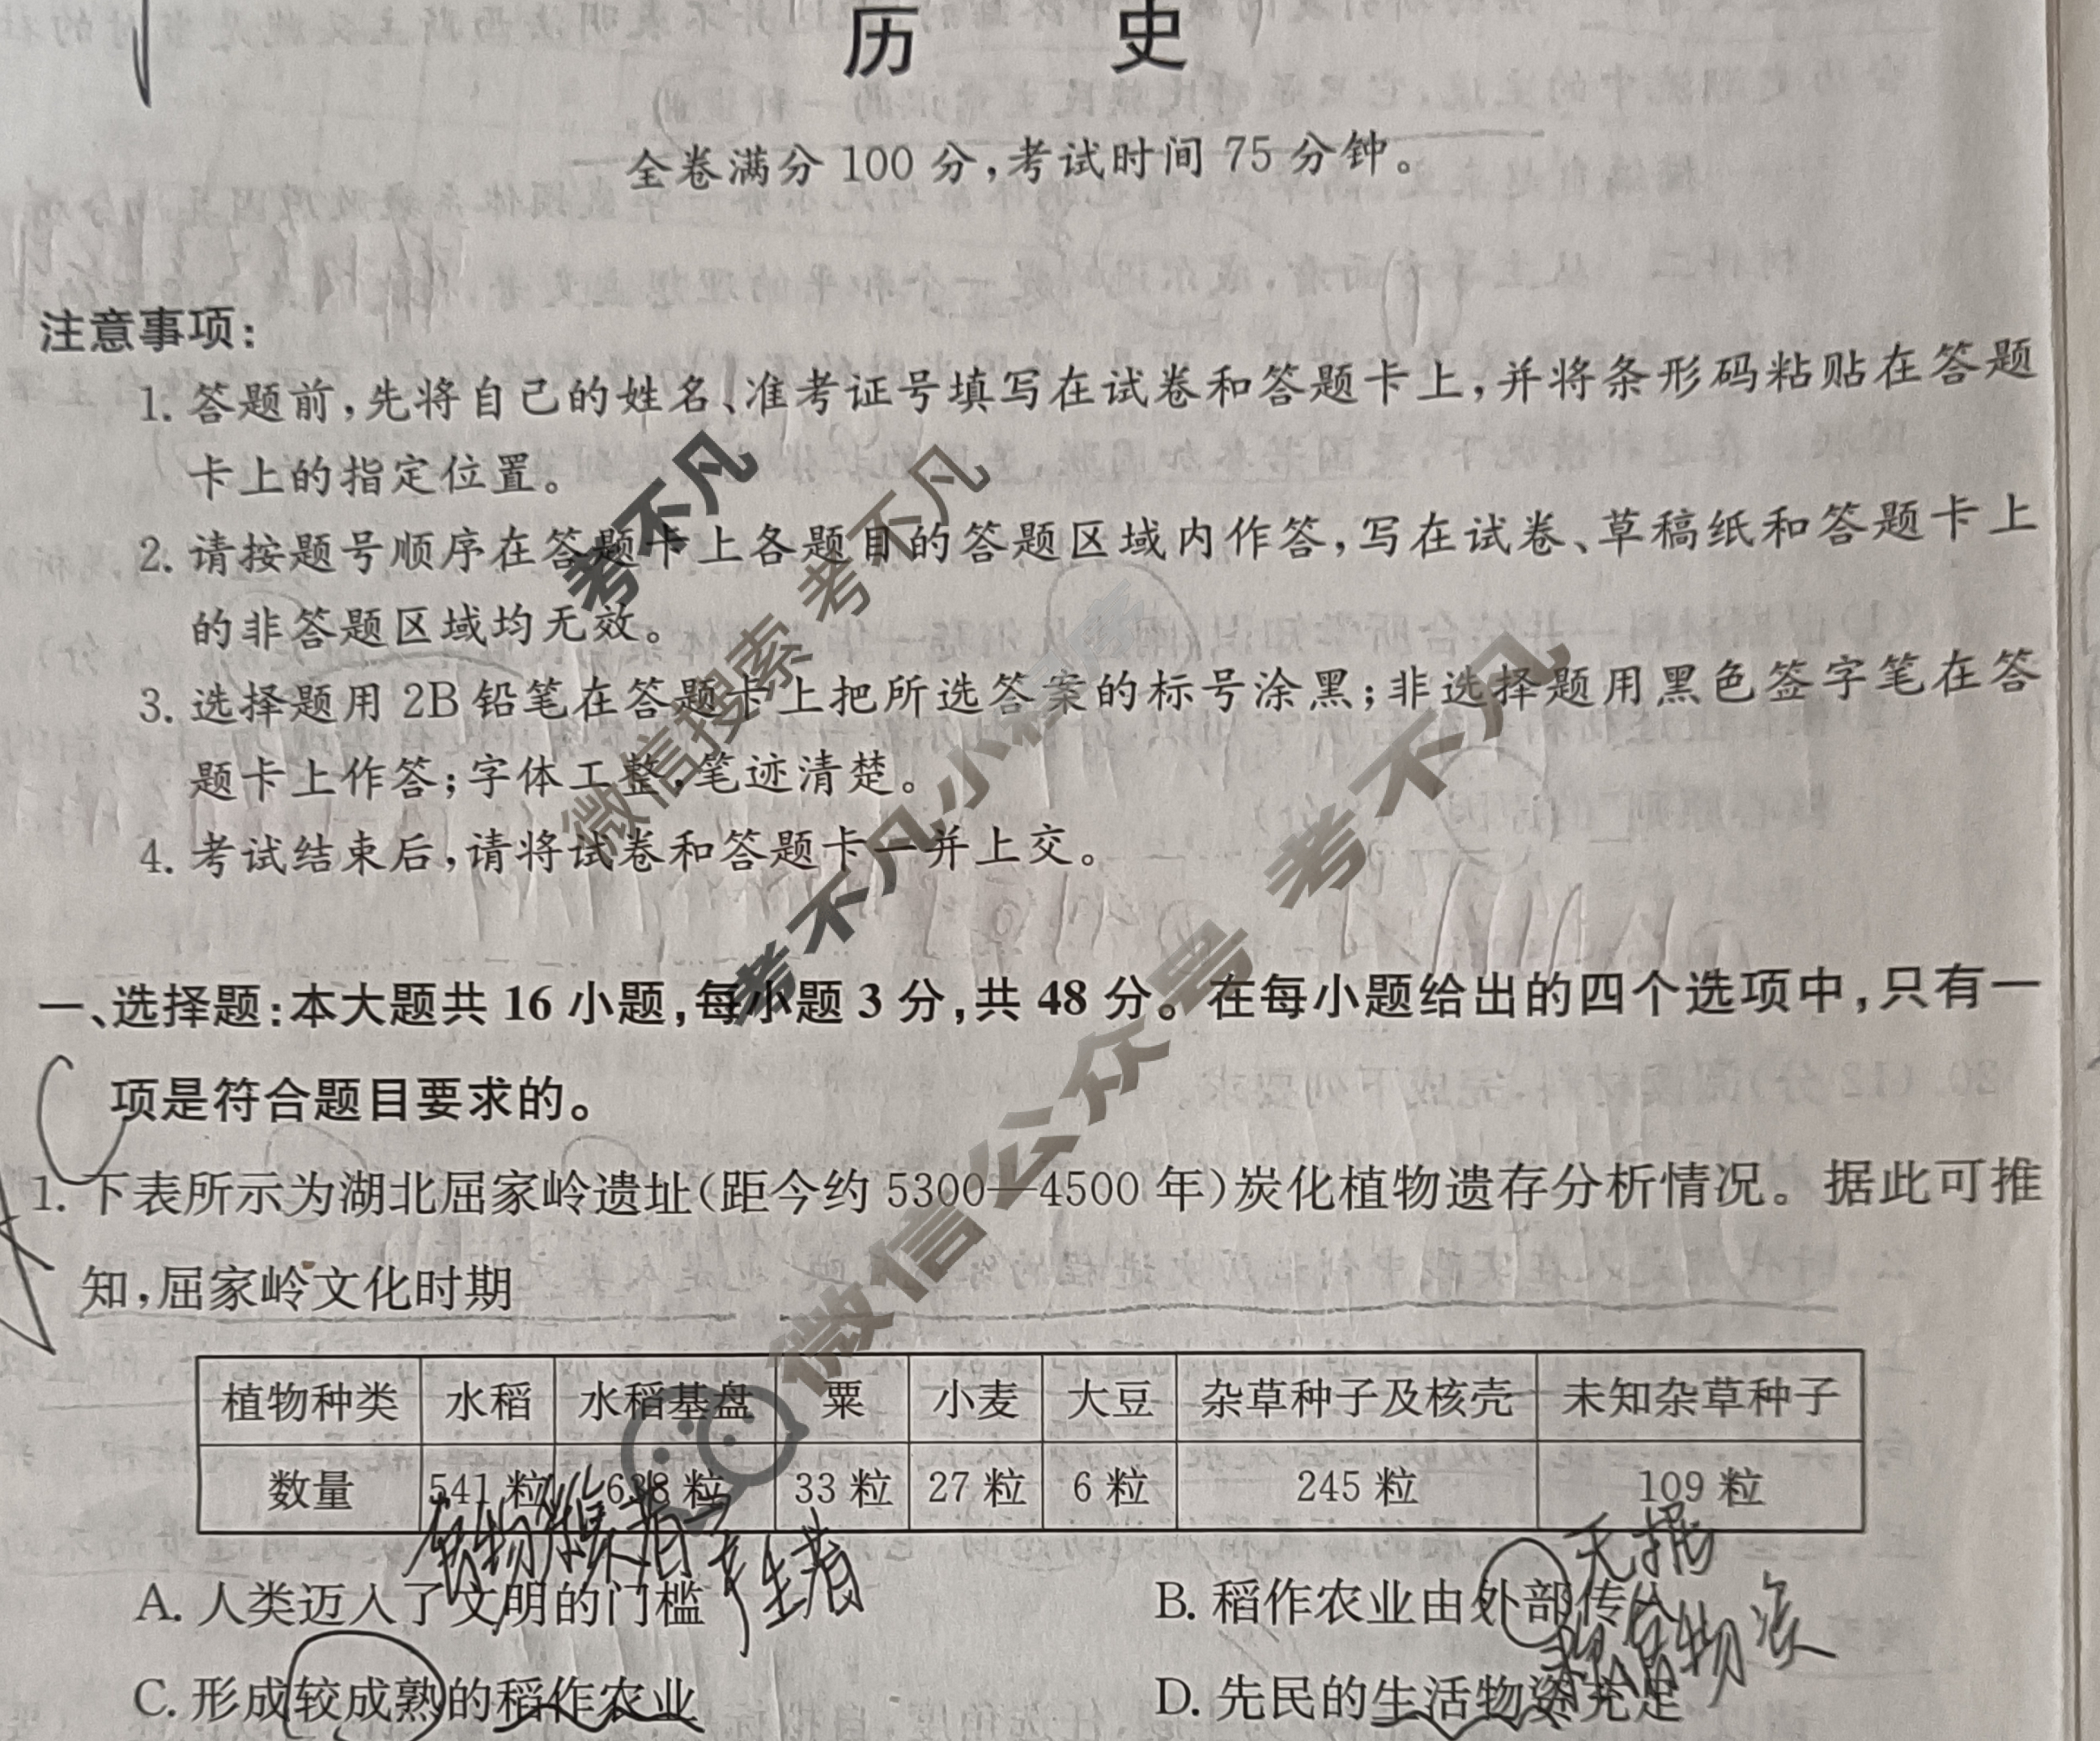 历 史
全卷满分 100 分,考试时间 75 分钟。
注意事项:
1. 答题前,先将自己的姓名、准考证号填写在试卷和答题卡上,并将条形码粘贴在答题
卡上的指定位置。
2. 请按题号顺序在答题卡上各题目的答题区域内作答,写在试卷、草稿纸和答题卡上
的非答题区域均无效。
3. 选择题用 2B 铅笔在答题卡上把所选答案的标号涂黑;非选择题用黑色签字笔在答
题卡上作答;字体工整,笔迹清楚。
4. 考试结束后,请将试卷和答题卡一并上交。
考不凡
微信搜索 考不凡
考不凡小程序
微信公众号 考不凡
一、选择题:本大题共 16 小题,每小题 3 分,共 48 分。在每小题给出的四个选项中,只有一
项是符合题目要求的。
1. 下表所示为湖北屈家岭遗址(距今约 5300—4500 年)炭化植物遗存分析情况。据此可推
知,屈家岭文化时期
植物种类 水稻 水稻基盘 粟 小麦 大豆 杂草种子及核壳 未知杂草种子
数量 541 粒 638 粒 33 粒 27 粒 6 粒 245 粒 109 粒
A. 人类迈入了文明的门槛
B. 稻作农业由外部传入
C. 形成较成熟的稻作农业
D. 先民的生活物资充足